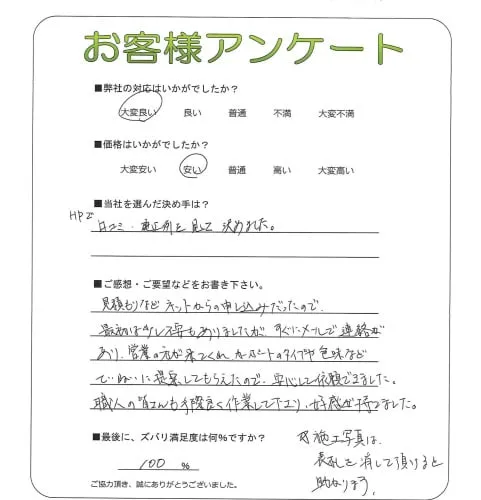 お客様アンケート
■弊社の対応はいかがでしたか？
大変良い 良い 普通 不満 大変不満
■価格はいかがでしたか？
大変安い 安い 普通 高い 大変高い
■当社を選んだ決め手は？
HPで
口コミ・施工例を見て決めました。
■ご感想・ご要望などをお書き下さい。
見積もりなどネットからの申し込みだったので、
最初は少し不安もありましたが、すぐにメールで連絡が
あり、営業の方が来てくれ、カーポートのタイプや色味など
ていねいに提案してもらえたので、安心して依頼できました。
職人の皆さんも手際良く作業して下さり、好感が持てました。
■最後に、ズバリ満足度は何％ですか？
100 ％
施工写真は、
表札を消して頂けると
助かります。
ご協力頂き、誠にありがとうございました。